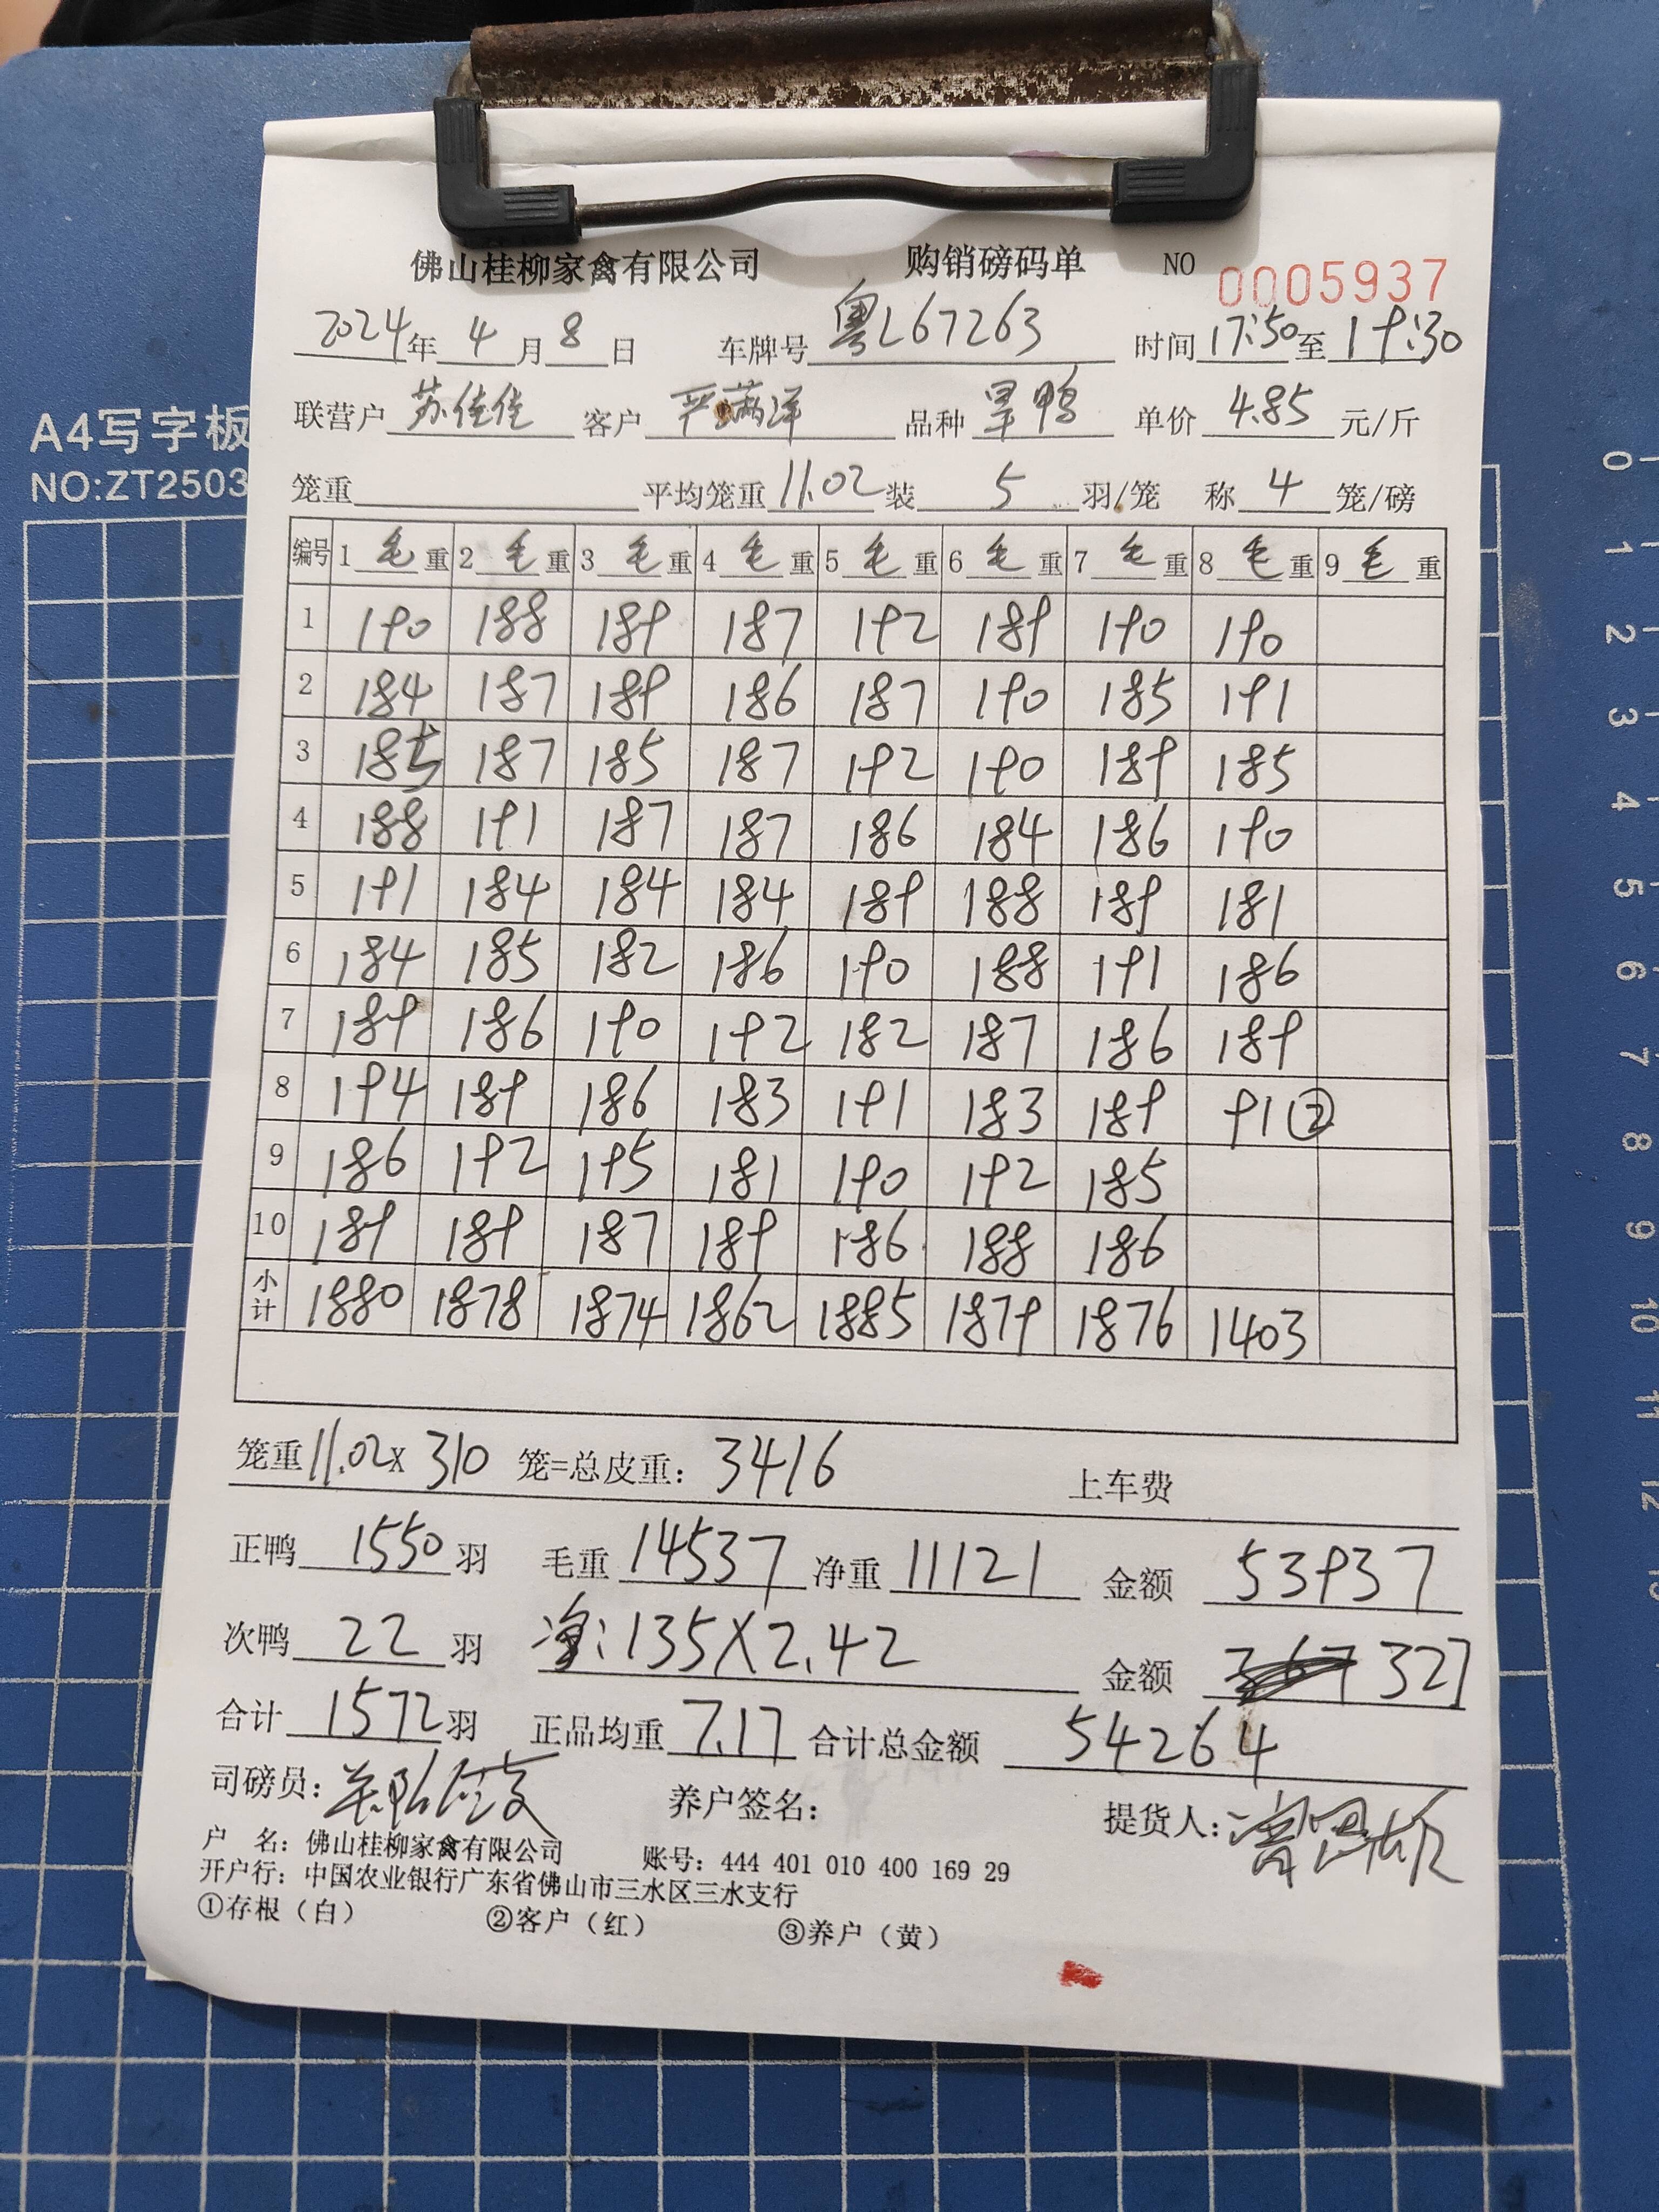 佛山桂柳家禽有限公司 购销磅码单 NO 0005937
2024年 4 月 8 日 车牌号 粤L67263 时间 17:50 至 19:30
联营户 苏佳佳 客户 严满洋 品种 旱鸭 单价 4.85 元/斤
笼重 平均笼重 11.02 装 5 羽/笼 称 4 笼/磅
编号 1 毛 重 2 毛 重 3 毛 重 4 毛 重 5 毛 重 6 毛 重 7 毛 重 8 毛 重 9 毛 重
1 190 188 189 187 192 189 190 190
2 184 187 189 186 187 190 185 191
3 185 187 185 187 192 190 189 185
4 188 191 187 187 186 184 186 190
5 191 184 184 184 189 188 189 181
6 184 185 182 186 190 188 191 186
7 189 186 190 192 182 187 186 189
8 194 189 186 183 191 183 189 91②
9 186 192 195 181 190 192 185
10 189 189 187 189 186 188 186
小计 1880 1878 1874 1862 1885 1879 1876 1403
笼重 11.02 x 310 笼=总皮重: 3416 上车费
正鸭 1550 羽 毛重 14537 净重 11121 金额 53937
次鸭 22 羽 净:135X2.42 金额 327
合计 1572 羽 正品均重 7.17 合计总金额 54264
司磅员: 养户签名: 提货人:
户 名: 佛山桂柳家禽有限公司 账号: 444 401 010 400 169 29
开户行: 中国农业银行广东省佛山市三水区三水支行
①存根（白） ②客户（红） ③养户（黄）
A4写字板
NO:ZT2503
0
1
2
3
4
5
6
7
8
9
10
11
12
13